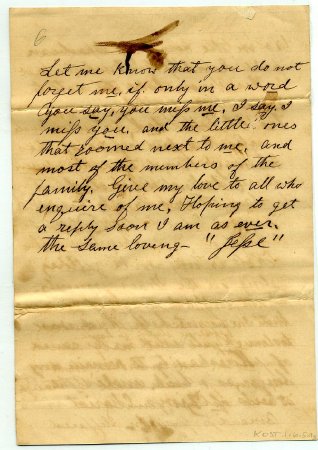 6
Let me know that you do not
forget me, if only in a word
you say, you miss me, I say, I
miss you, and the little ones
that roomed next to me, and
most of the members of the
family. Give my love to all who
enquire of me, Hoping to get
a reply soon I am as ever,
the same loving- "Jesse"